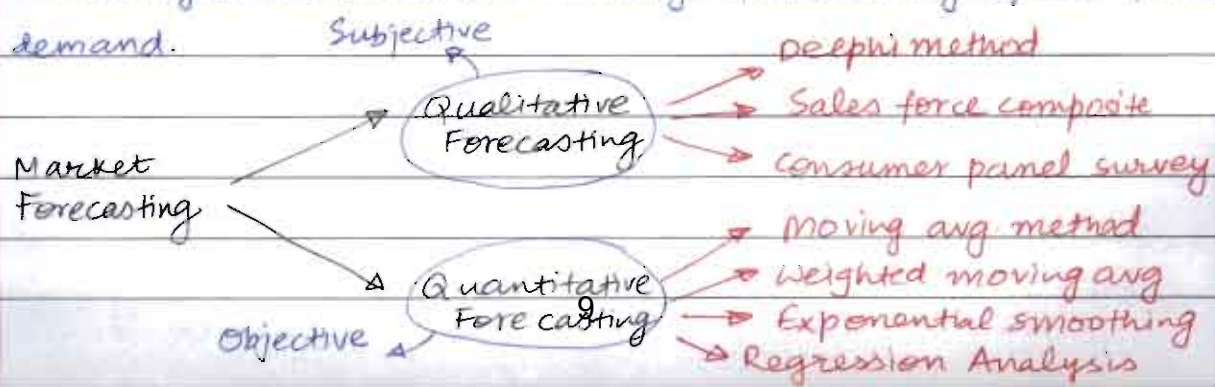 demand.
Subjective
Qualitative
Forecasting
Deephi method
Sales force composite
Consumer panel survey
Market
Forecasting
Quantitative
Forecasting
9
Objective
Moving avg method
Weighted moving avg
Exponential smoothing
Regression Analysis